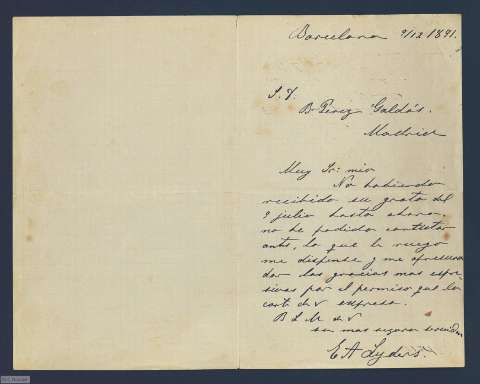 Barcelona 9/12 1891.
S. D.
B Perez Galdós.
Madrid
Muy Sr: mio
No habiendo
recibido su grata del
9 julio hasta ahora,
no he podido contestar
antes, lo que le ruego
me dispense y me apresuro a
dar las gracias mas expre-
sivas por el permiso que la
carta de V expresa.
B L M de V
su mas seguro servidor
E A Lyders.